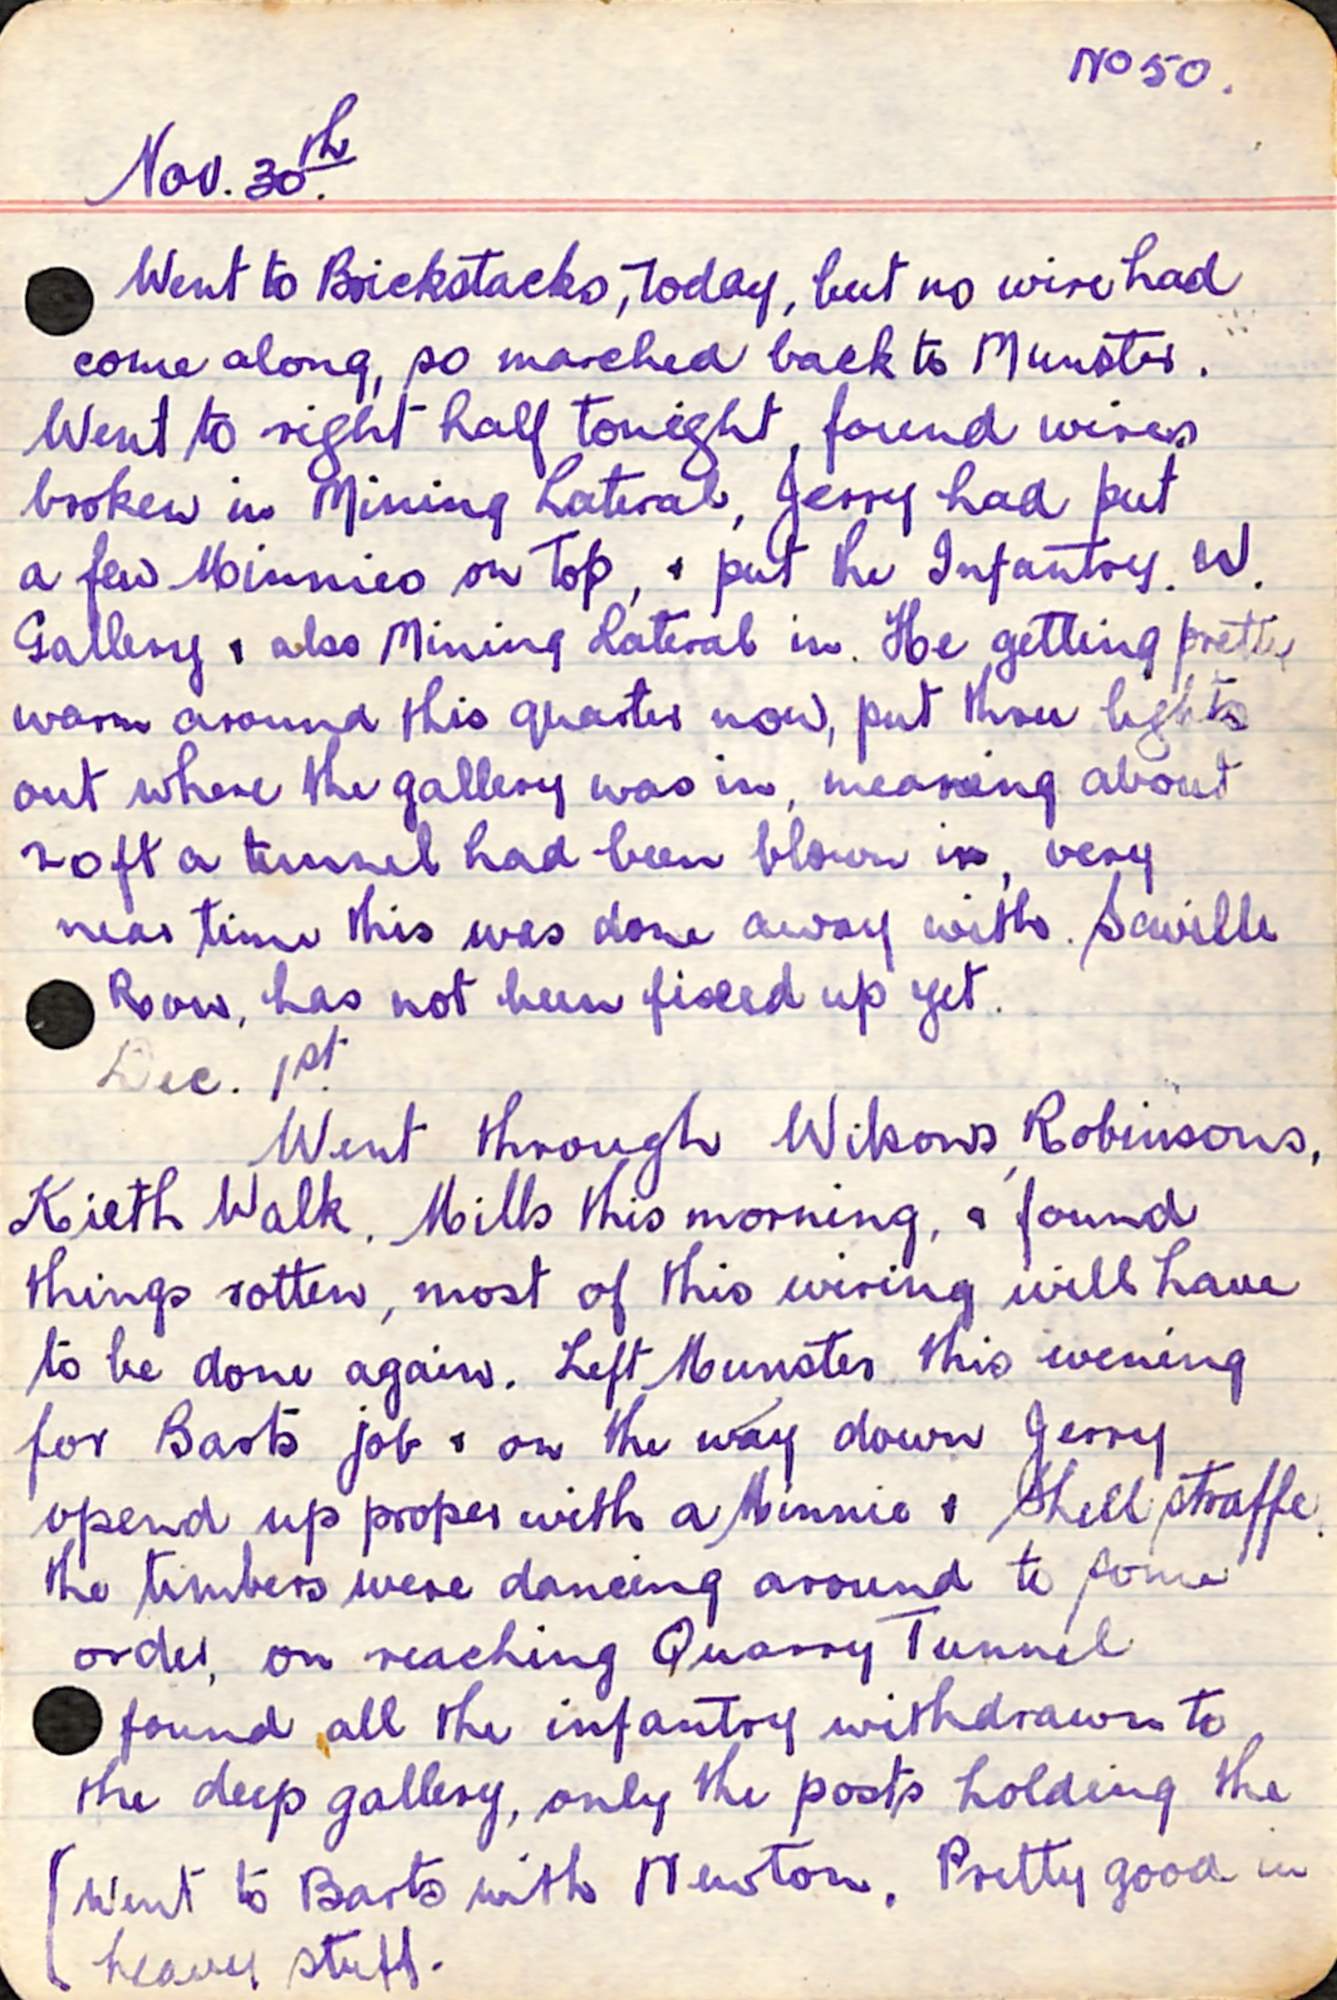 No 50.
Nov. 30th.
Went to Brickstacks, Today, but no wire had
come along, so marched back to Munster.
Went to right half tonight, found wires
broken in Mining Lateral, Jerry had put
a few Minnies on Top, & put the Infantry. W.
Gallery & also Mining Lateral in. He getting pretty
warm around this quarter now, put three lights
out where the gallery was in, meaning about
20ft a tunnel had been blown in, very
near time this was done away with. Saville
Row, has not been fixed up yet.
Dec. 1st.
Went through Wilsons, Robinsons,
Kieth Walk, Mills this morning, & found
things rotten, most of this wiring will have
to be done again. Left Munster this evening
for Barts job & on the way down Jerry
opend up proper with a Minnie & Shell straffe.
the timbers were dancing around to some
order, on reaching Quarry Tunnel
found all the infantry withdrawn to
the deep gallery, only the posts holding the
(Went to Barts with Newton. Pretty good in
heavy stuff.